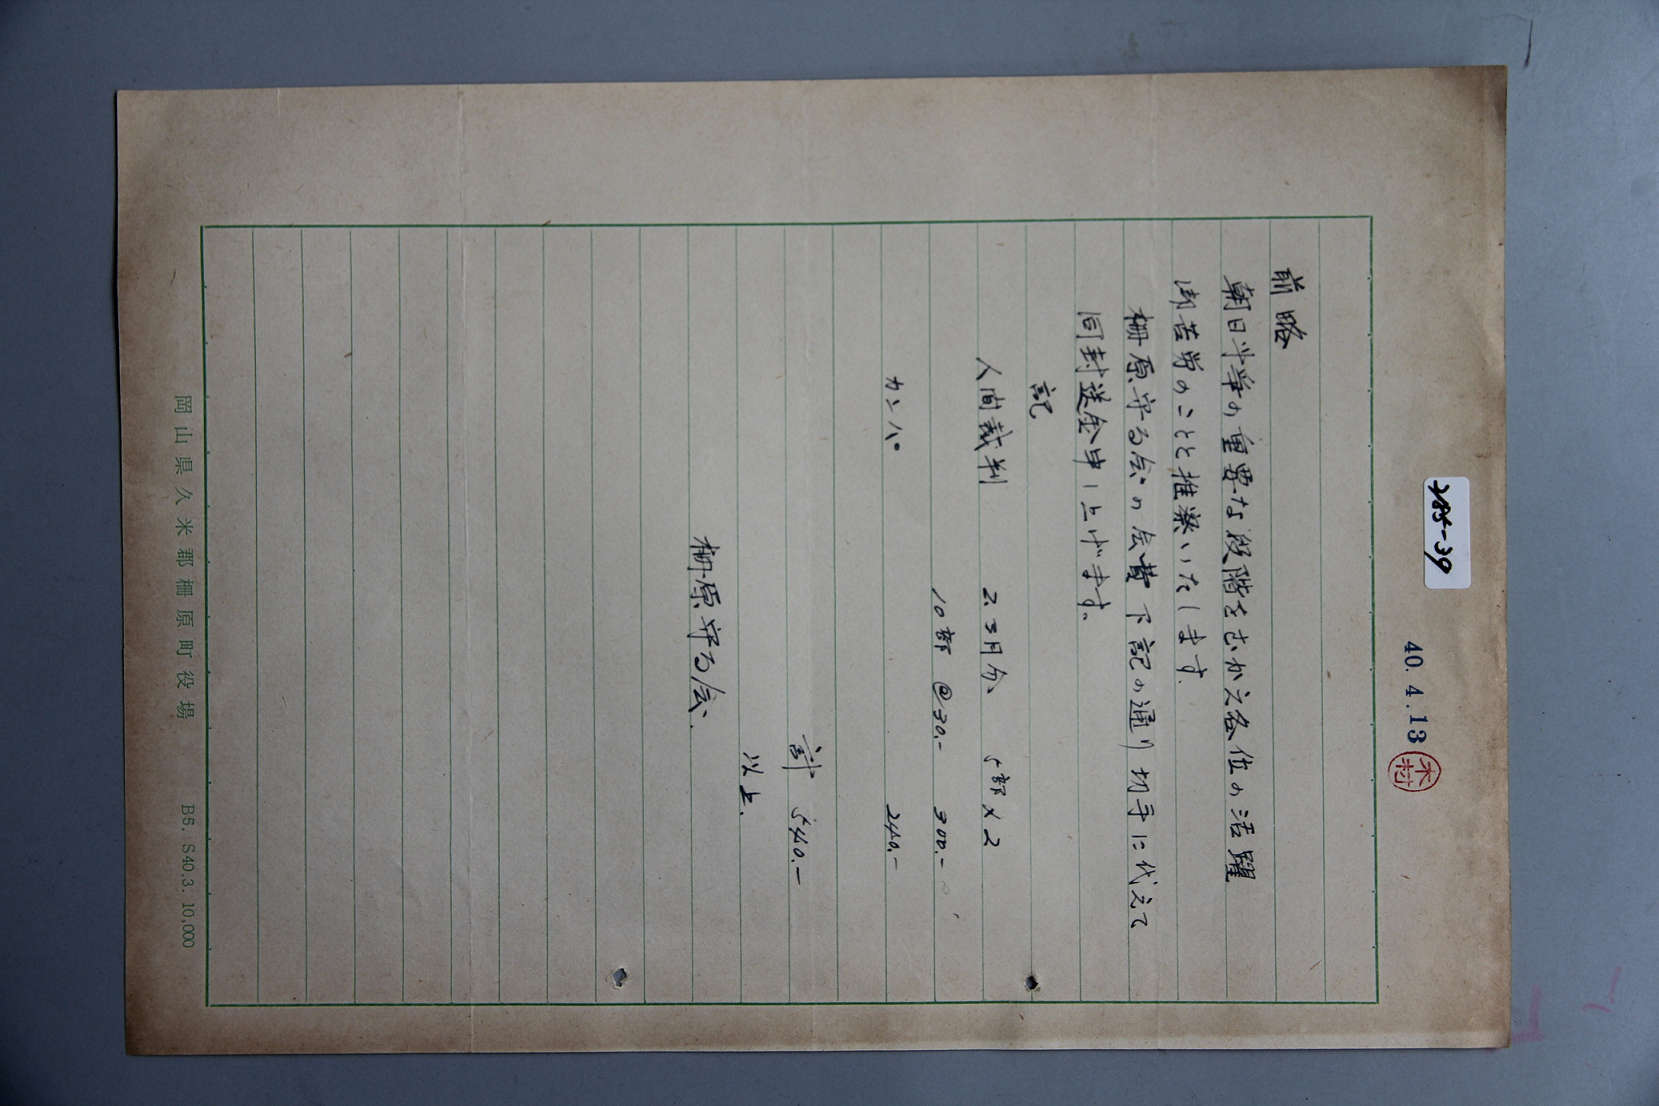 285-39
40.4.13
木村
前略
朝日斗争の重要な段階をむかえ各位の活躍
御苦労のことと推察いたします。
柵原守る会の会費下記の通り切手に代えて
同封送金申し上げます。
記
人間裁判 2.3月分 5部×2
10部 @30.- 300.-
カンパ 240.-
計 540.-
以上.
柵原守る会.
岡山県久米郡柵原町役場 B5. S40.3. 10,000